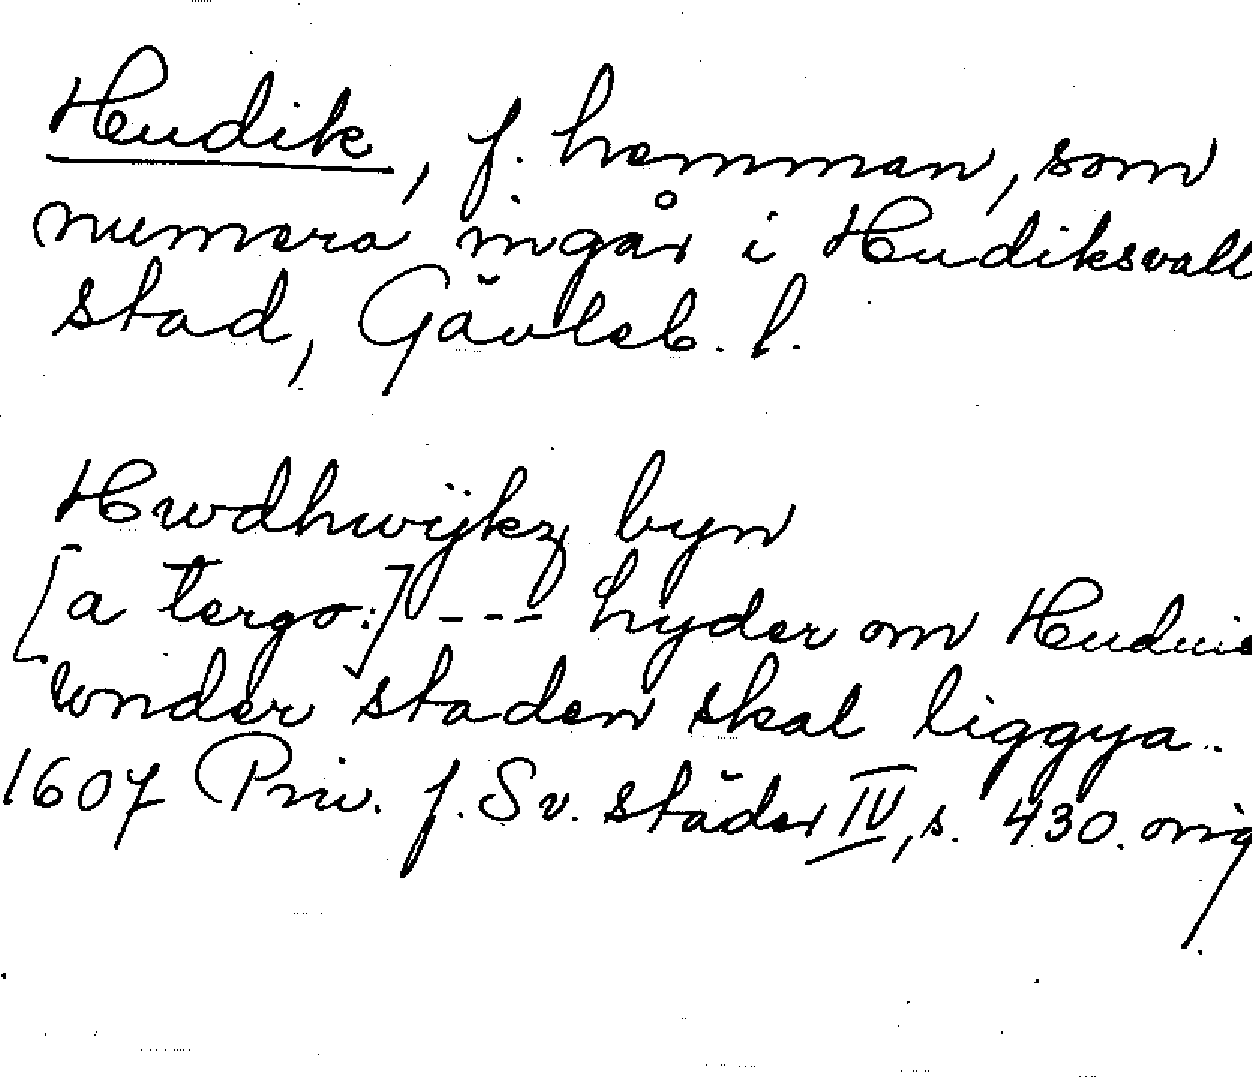 Hudik, f. hemman, som
numera ingår i Hudiksvall
stad, Gävleb. l.
Hwdhwijkz byn
[a tergo:] --- hyder om Huduic
wnder staden skal liggya.
1607 Priv. f. Sv. städer IV, s. 430. orig